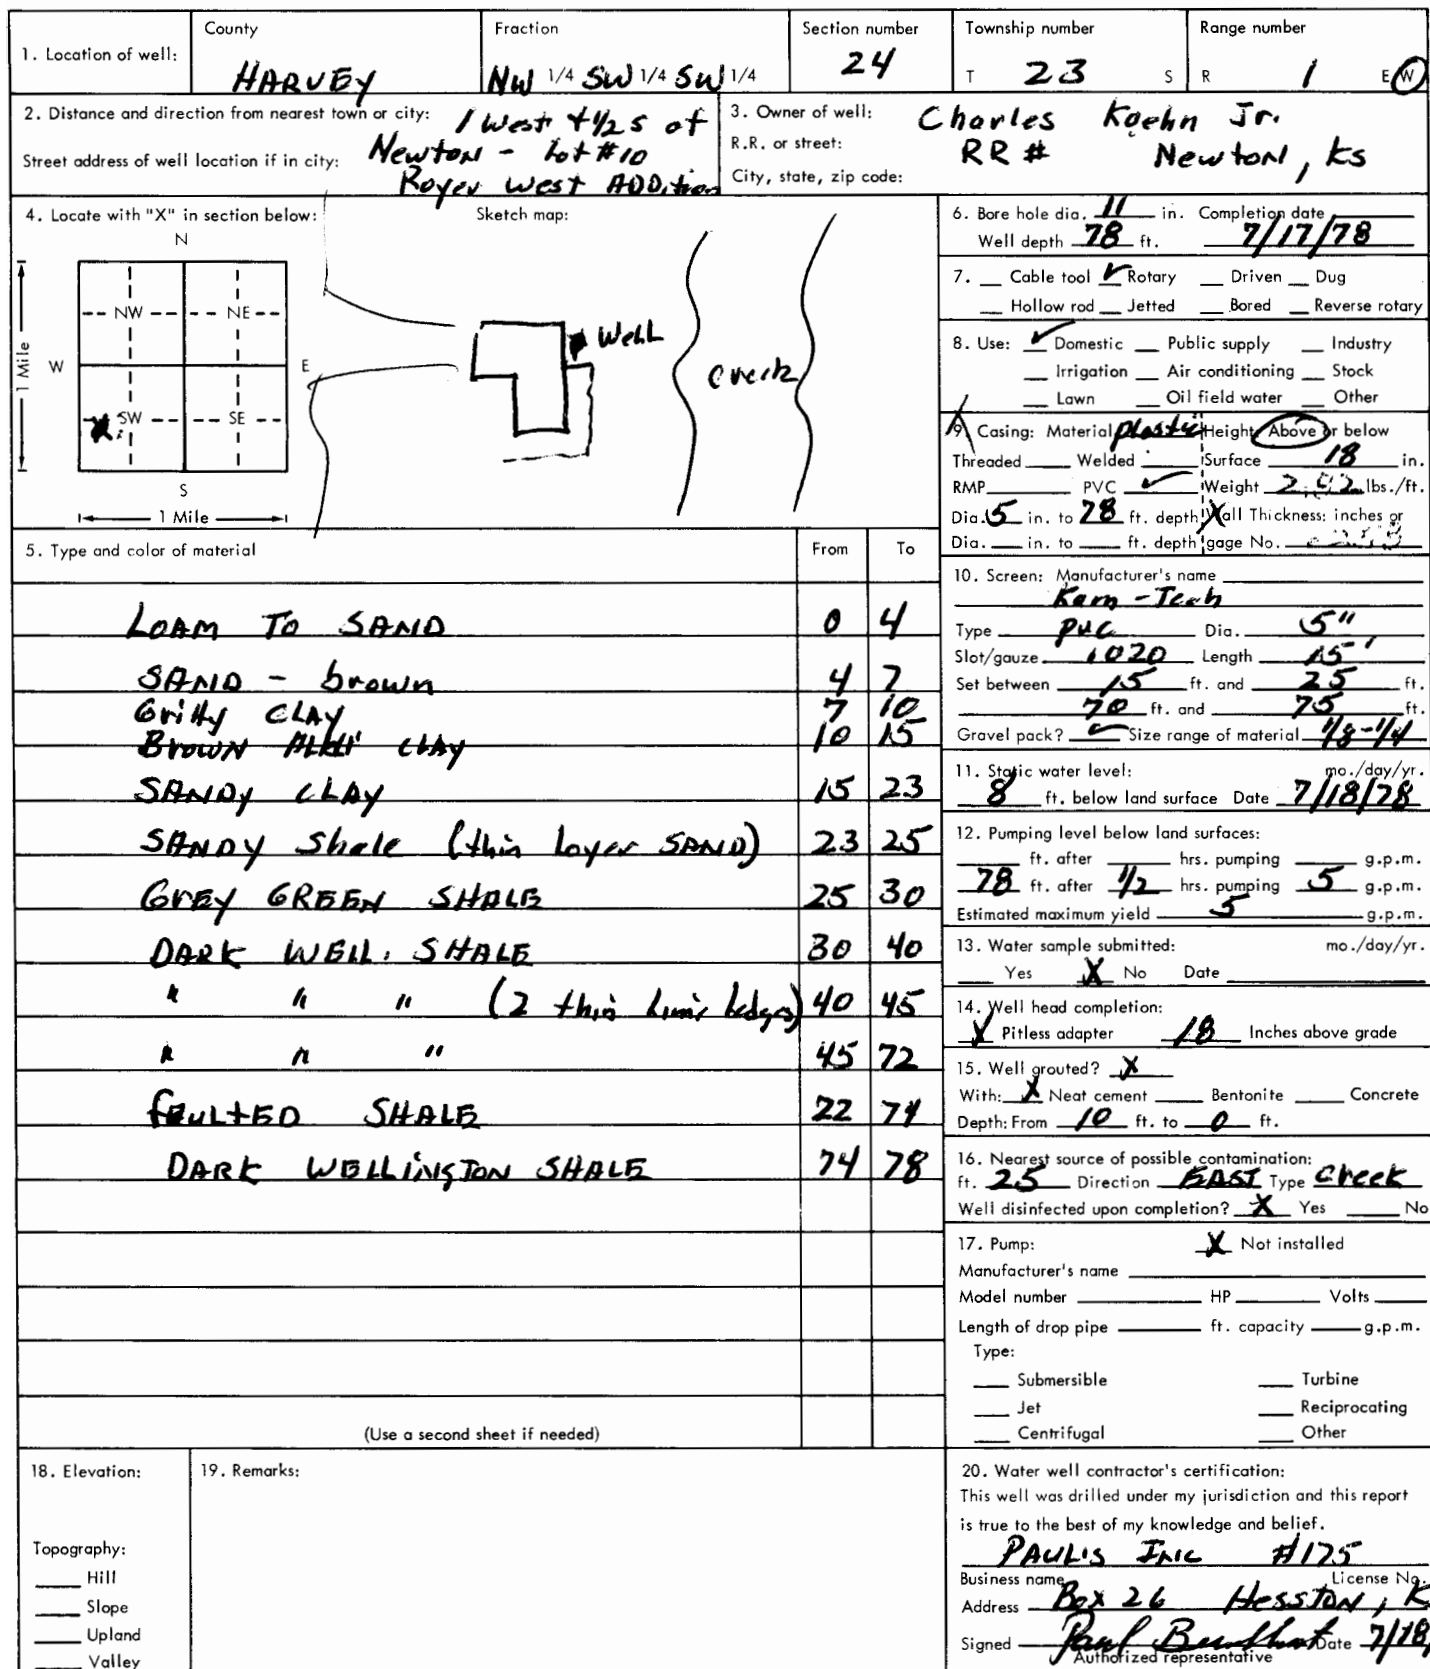 1. Location of well: County HARVEY Fraction NW 1/4 SW 1/4 SW 1/4 Section number 24 Township number T 23 S Range number R 1 E W
2. Distance and direction from nearest town or city: 1 West + 1/2 S of
Street address of well location if in city: Newton - Lot #10
Royer West ADDition
3. Owner of well: Charles Koehn Jr.
R.R. or street: RR # Newton, Ks
City, state, zip code:
4. Locate with "X" in section below: Sketch map:
N
NW NE
W E
SW SE
X
S
1 Mile
1 Mile
Well
creek
5. Type and color of material From To
LOAM TO SAND 0 4
SAND - brown 4 7
Gritty CLAY 7 10
Brown CLAY 10 15
SANDY CLAY 15 23
SANDY Shale (thin Layer SAND) 23 25
GREY GREEN SHALE 25 30
DARK WELL. SHALE 30 40
" " " (2 thin Lime Ledges) 40 45
" " " 45 72
FAULTED SHALE 22 74
DARK WELLINGTON SHALE 74 78
(Use a second sheet if needed)
6. Bore hole dia. 11 in. Completion date
Well depth 78 ft. 7/17/78
7. Cable tool ✓ Rotary Driven Dug
Hollow rod Jetted Bored Reverse rotary
8. Use: ✓ Domestic Public supply Industry
Irrigation Air conditioning Stock
Lawn Oil field water Other
9. Casing: Material plastic Height: Above or below
Threaded Welded Surface 18 in.
RMP PVC ✓ Weight lbs./ft.
Dia. 5 in. to 78 ft. depth Wall Thickness: inches or
Dia. in. to ft. depth gage No.
10. Screen: Manufacturer's name
Kam-Tech
Type PVC Dia. 5"
Slot/gauze .020 Length 15'
Set between 15 ft. and 25 ft.
70 ft. and 75 ft.
Gravel pack? ✓ Size range of material 1/8-1/4
11. Static water level: mo./day/yr.
8 ft. below land surface Date 7/18/78
12. Pumping level below land surfaces:
ft. after hrs. pumping g.p.m.
78 ft. after 1/2 hrs. pumping 5 g.p.m.
Estimated maximum yield 5 g.p.m.
13. Water sample submitted: mo./day/yr.
Yes X No Date
14. Well head completion:
X Pitless adapter 18 Inches above grade
15. Well grouted? X
With: X Neat cement Bentonite Concrete
Depth: From 10 ft. to 0 ft.
16. Nearest source of possible contamination:
ft. 25 Direction EAST Type Creek
Well disinfected upon completion? X Yes No
17. Pump: X Not installed
Manufacturer's name
Model number HP Volts
Length of drop pipe ft. capacity g.p.m.
Type:
Submersible Turbine
Jet Reciprocating
Centrifugal Other
18. Elevation:
Topography:
Hill
Slope
Upland
Valley
19. Remarks:
20. Water well contractor's certification:
This well was drilled under my jurisdiction and this report
is true to the best of my knowledge and belief.
PAUL'S INC #175
Business name License No.
Address Box 26 Hesston, K
Signed Paul Date 7/18/
Authorized representative